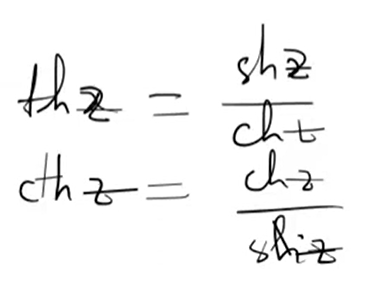 th z = sh z / ch z
cth z = ch z / sh z